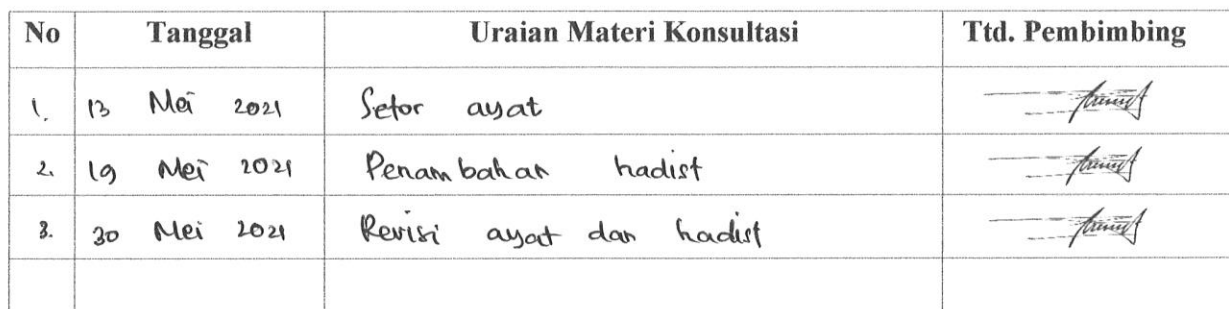 No Tanggal Uraian Materi Konsultasi Ttd. Pembimbing
1. 13 Mei 2021 Setor ayat
2. 19 Mei 2021 Penambahan hadist
3. 30 Mei 2021 Revisi ayat dan hadist